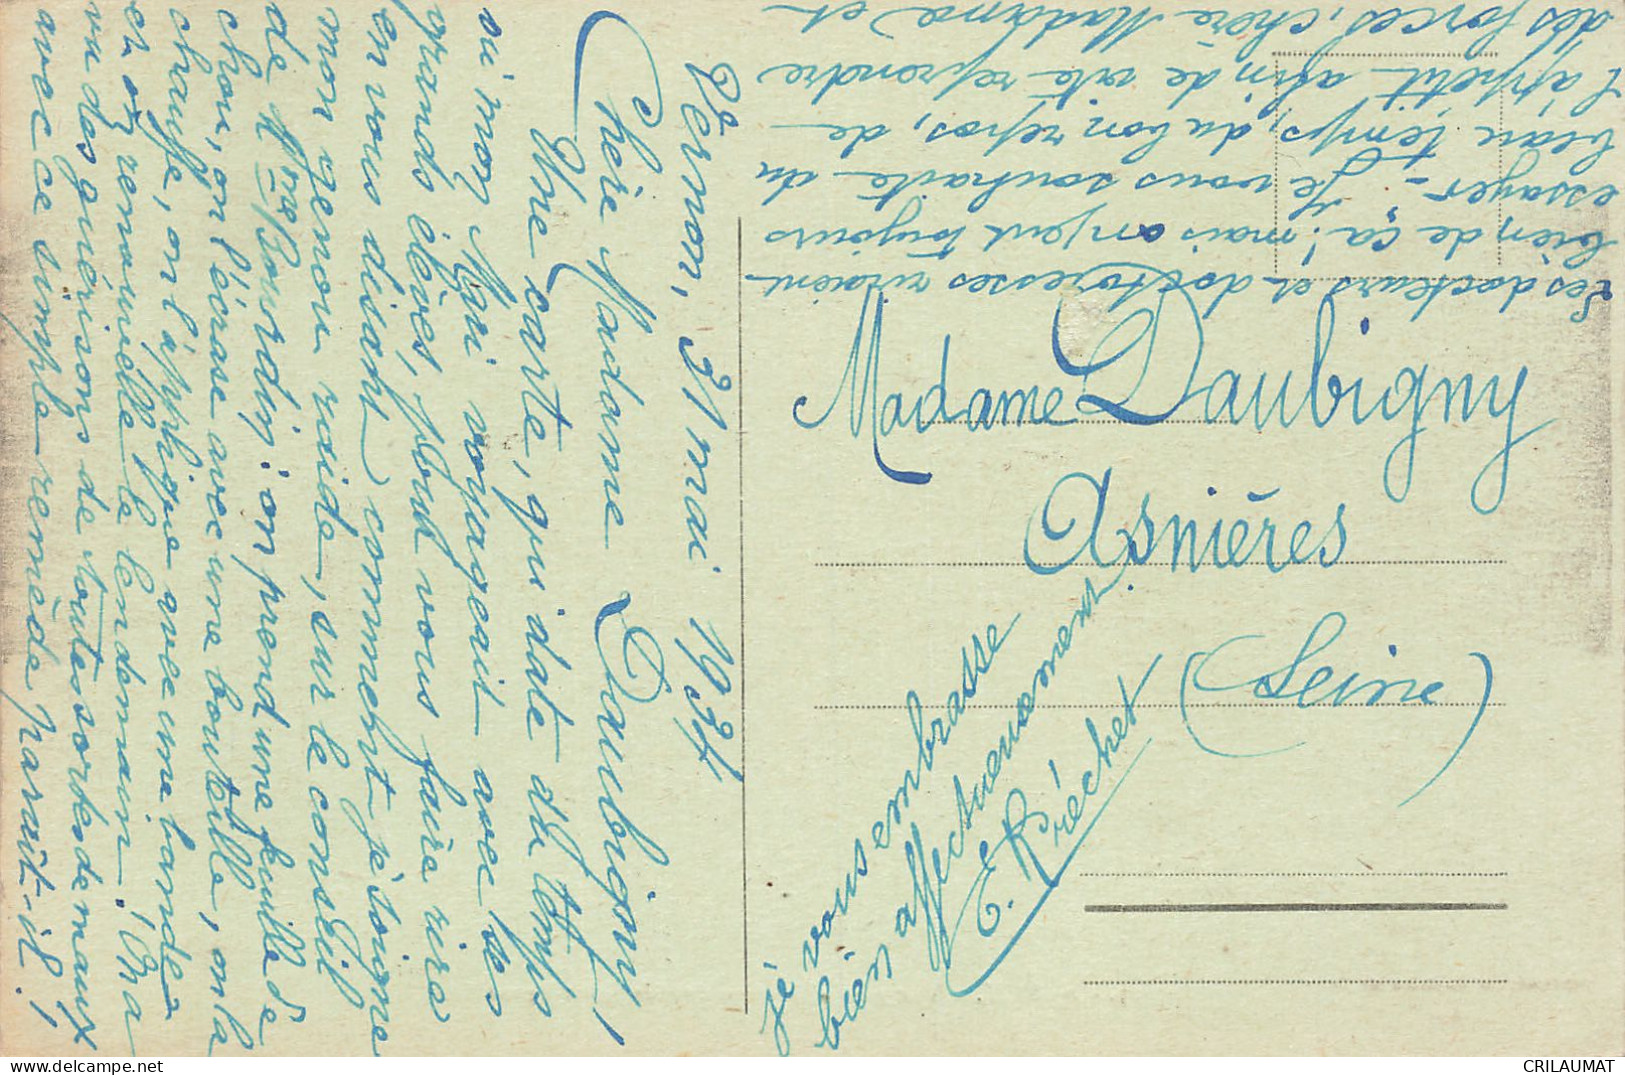 Vernon, 31 mai 1934
Chère Madame Daubigny,
Une carte, qui date du temps
où mon Mari voyageait avec ses
grands élèves, pour vous faire rire
en vous disant comment je soigne
mon genou raide, sur le conseil
de Mme Bourdin : on prend une feuille de
chou, on l'écrase avec une bouteille, on la
chauffe, on l'applique avec une bande
et on renouvelle le lendemain. On a
vu des guérisons de toutes sortes de maux
avec ce simple remède paraît-il !
Les docteurs et doctoresses riraient
bien de ça ! mais on peut toujours
essayer - Je vous souhaite du
beau temps, du bon repos, de
l'appétit afin de vite reprendre
des forces, chère Madame et
je vous embrasse
bien affectueusement.
E. Fréchet
Madame Daubigny
Asnières
(Seine)
CRILAUMAT